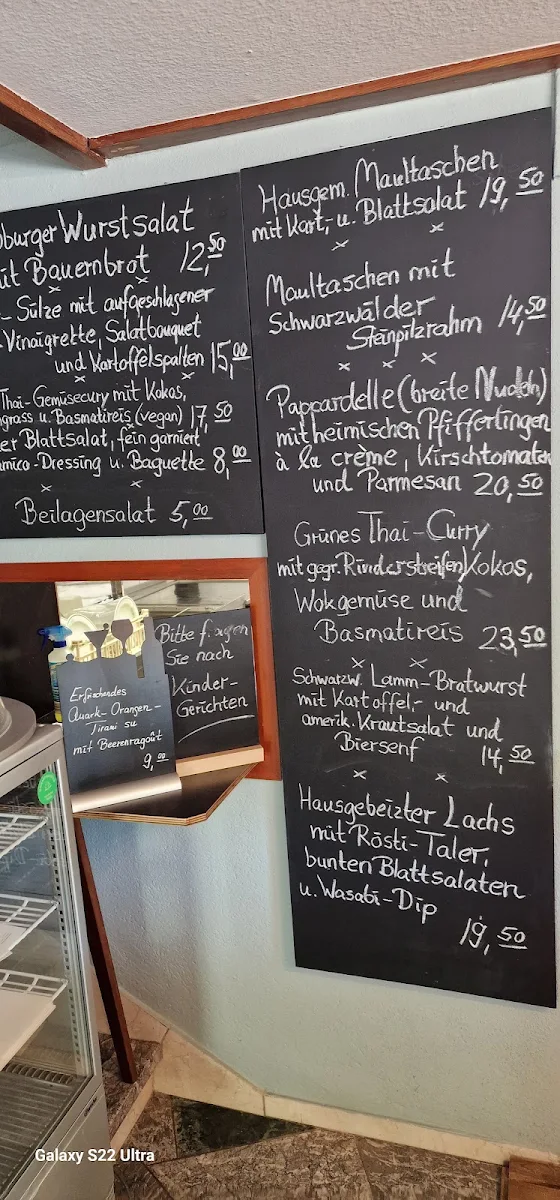 Wurstsalat
Bauernbrot 12,50
Sülze mit aufgeschlagener
Vinaigrette, Salatbouquet
und Kartoffelspalten 15,00
Thai-Gemüsecury mit Kokos,
u. Basmatireis (vegan) 17,50
Blattsalat, fein garniert
Dressing u. Baguette 8,00
Beilagensalat 5,00
Hausgem. Maultaschen
mit Kart.- u. Blattsalat 19,50
Maultaschen mit
Schwarzwälder
Steinpilzrahm 14,50
Pappardelle (breite Nudeln)
mit heimischen Pfifferlingen
à la crème, Kirschtomaten
und Parmesan 20,50
Grünes Thai-Curry
mit gegr. Rinderstreifen, Kokos,
Wokgemüse und
Basmatireis 23,50
Schwarzw. Lamm-Bratwurst
mit Kartoffel- und
amerik. Krautsalat und
Biersenf 14,50
Hausgebeizter Lachs
mit Rösti-Taler,
bunten Blattsalaten
u. Wasabi-Dip
19,50
Bitte fragen
Sie nach
Kinder-
Gerichten
Erfrischendes
Quark-Orangen-
Tirami su
mit Beerenragoût
9,00
Galaxy S22 Ultra